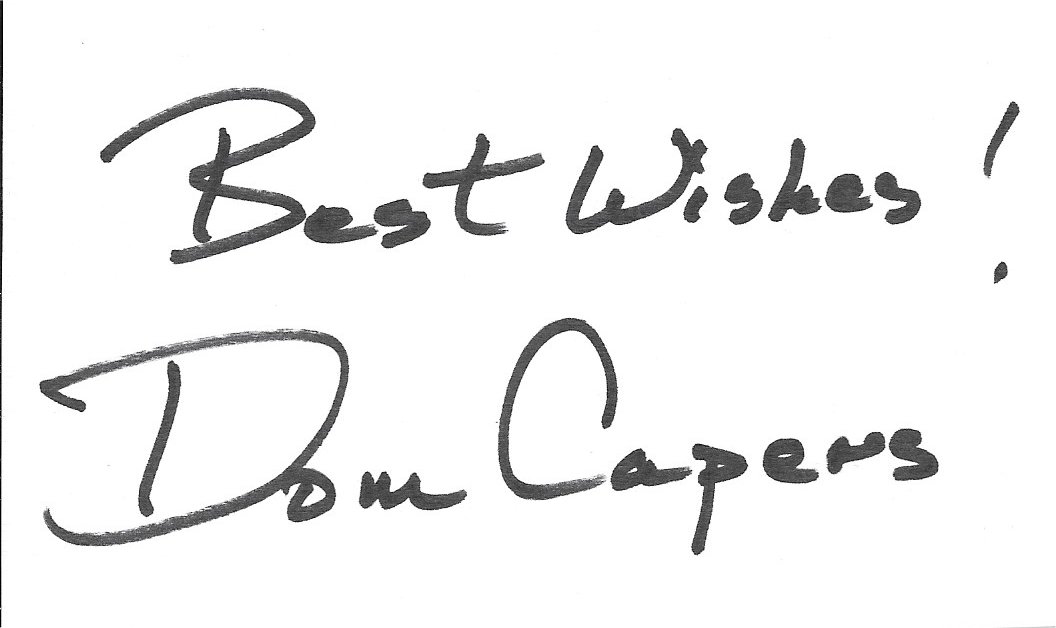 Best Wishes!
Dom Capers